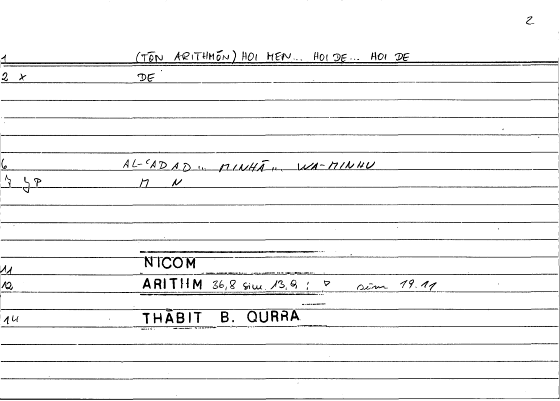 2
1 (TŌN ARITHMŌN) HOI MEN... HOI DE... HOI DE
2 x DE
6 AL-ʿADAD... MINHĀ... WA-MINHU
M N
11 NICOM
12 ARITHM 36,8 sim. 13,9; sim 19.11
14 THĀBIT B. QURRA